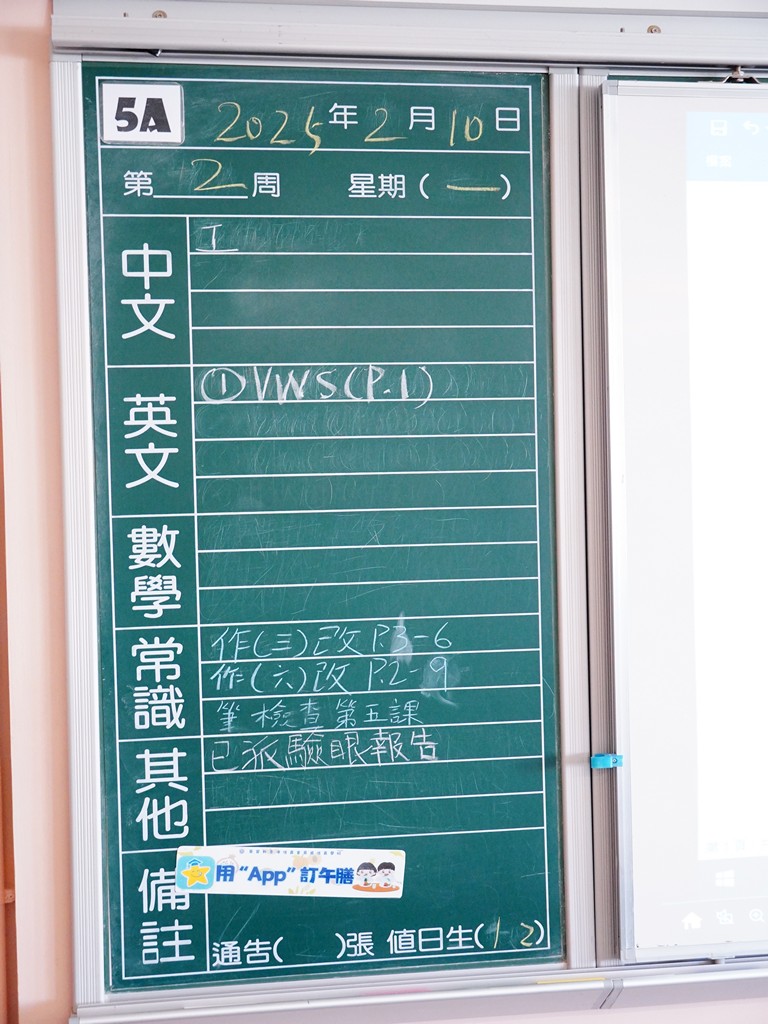 5A 2025年2月10日
第2周 星期(一)
中文
英文
①VWS(P.1)
數學
常識
作(三)改 P.3-6
作(六)改 P.2-9
筆 檢查 第五課
其他
已派驗眼報告
備註
用“App”訂午膳
通告( )張 值日生(1 2)